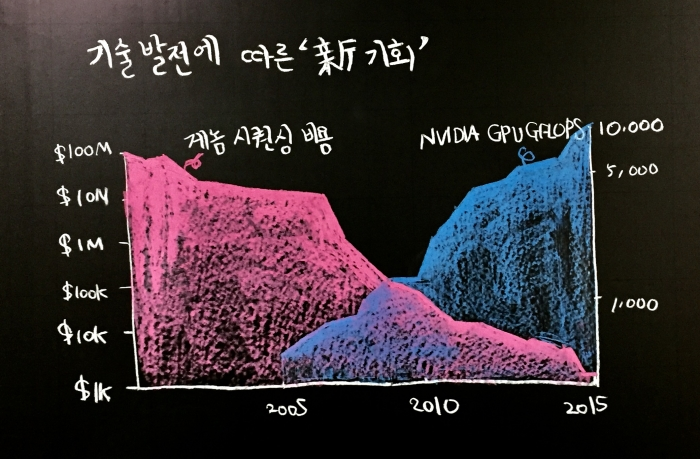 기술 발전에 따른 '新 기회'
게놈 시퀀싱 비용
NVIDIA GPU GFLOPS
$100M
$10M
$1M
$100K
$10K
$1K
10.000
5,000
1,000
2005
2010
2015